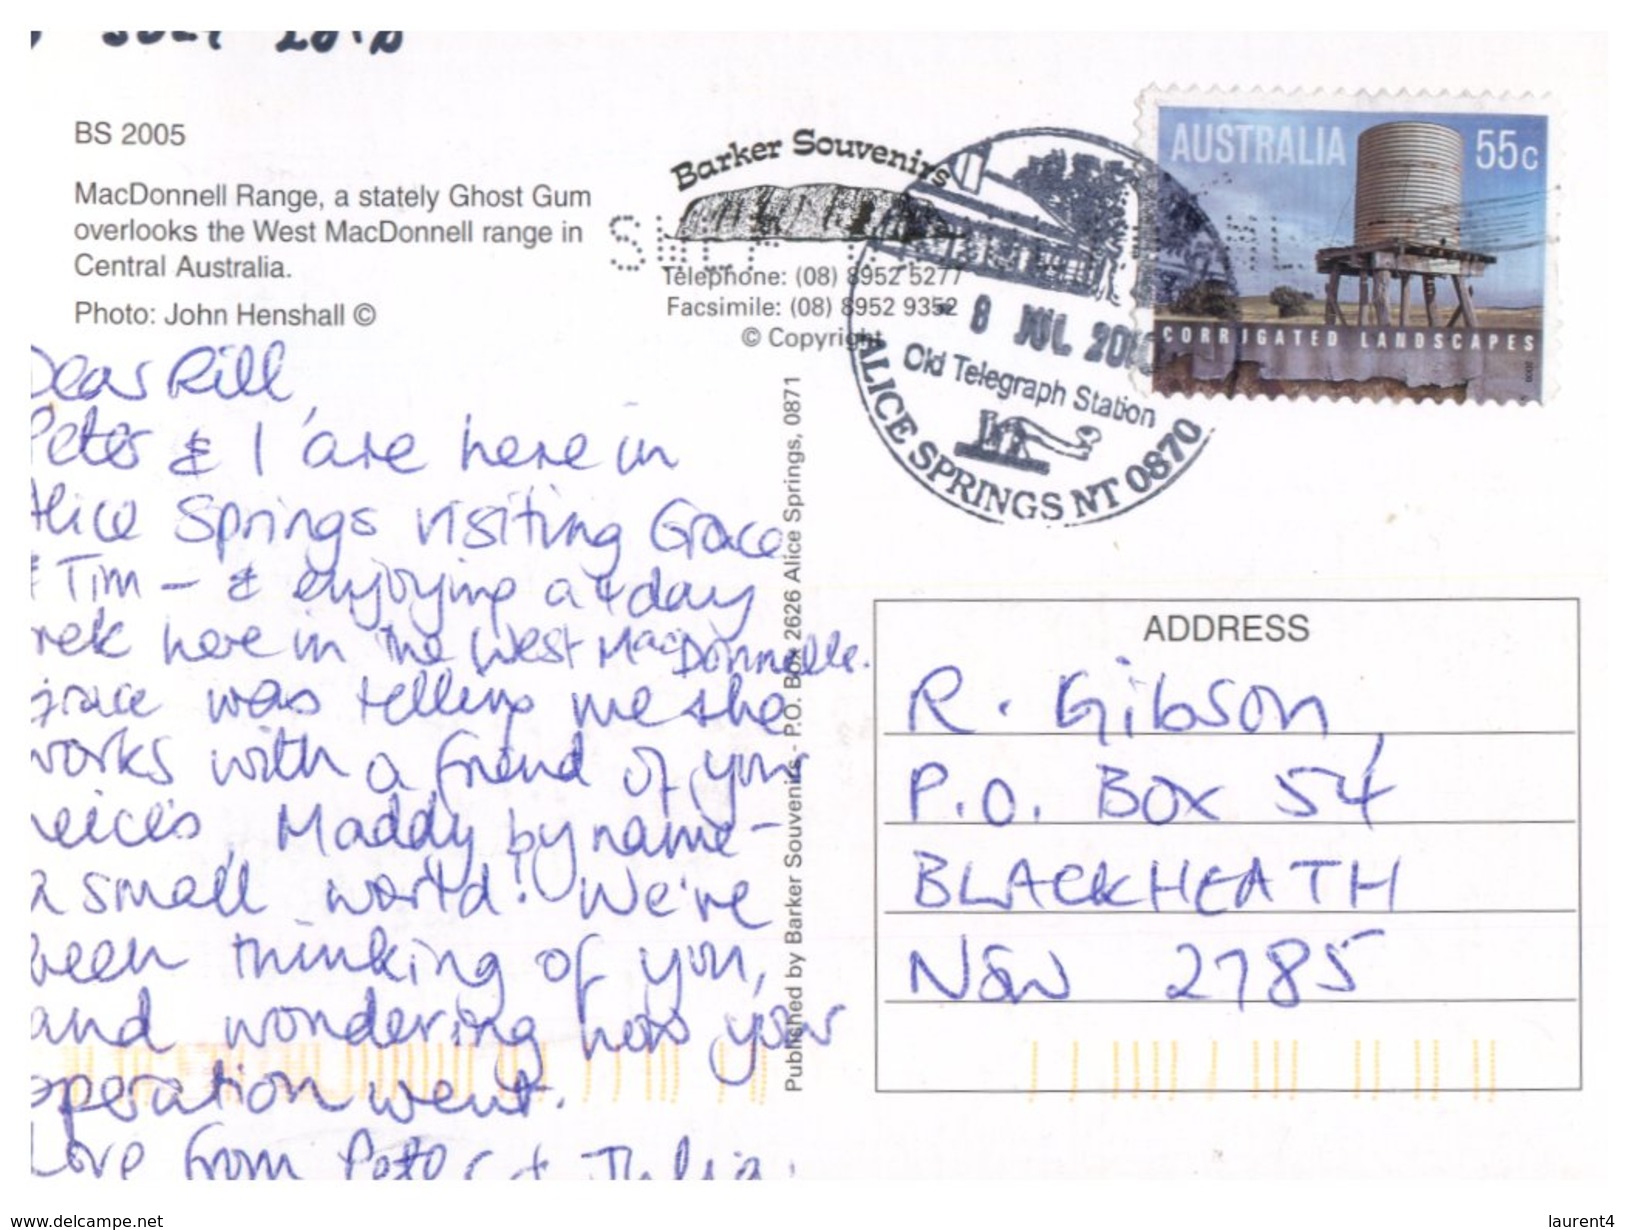 BS 2005
MacDonnell Range, a stately Ghost Gum
overlooks the West MacDonnell range in
Central Australia.
Photo: John Henshall ©
Barker Souvenirs
Telephone: (08) 8952 5277
Facsimile: (08) 8952 9352
© Copyright
AUSTRALIA 55c
CORRUGATED LANDSCAPES
8 JUL 20
Old Telegraph Station
ALICE SPRINGS NT 0870
Dear Rill,
Peter & I are here in
Alice Springs visiting Grace
& Tim - & enjoying a 4 day
rek here in the West MacDonnells.
Grace was telling me she
works with a friend of your
eices, Maddy by name -
a small world! We're
been thinking of you,
and wondering how your
operation went.
Love from Peter + Julia.
Published by Barker Souvenirs - P.O. Box 2626 Alice Springs, 0871
ADDRESS
R. Gibson,
P.O. Box 54
BLACKHEATH
NSW 2785
www.delcampe.net
laurent4